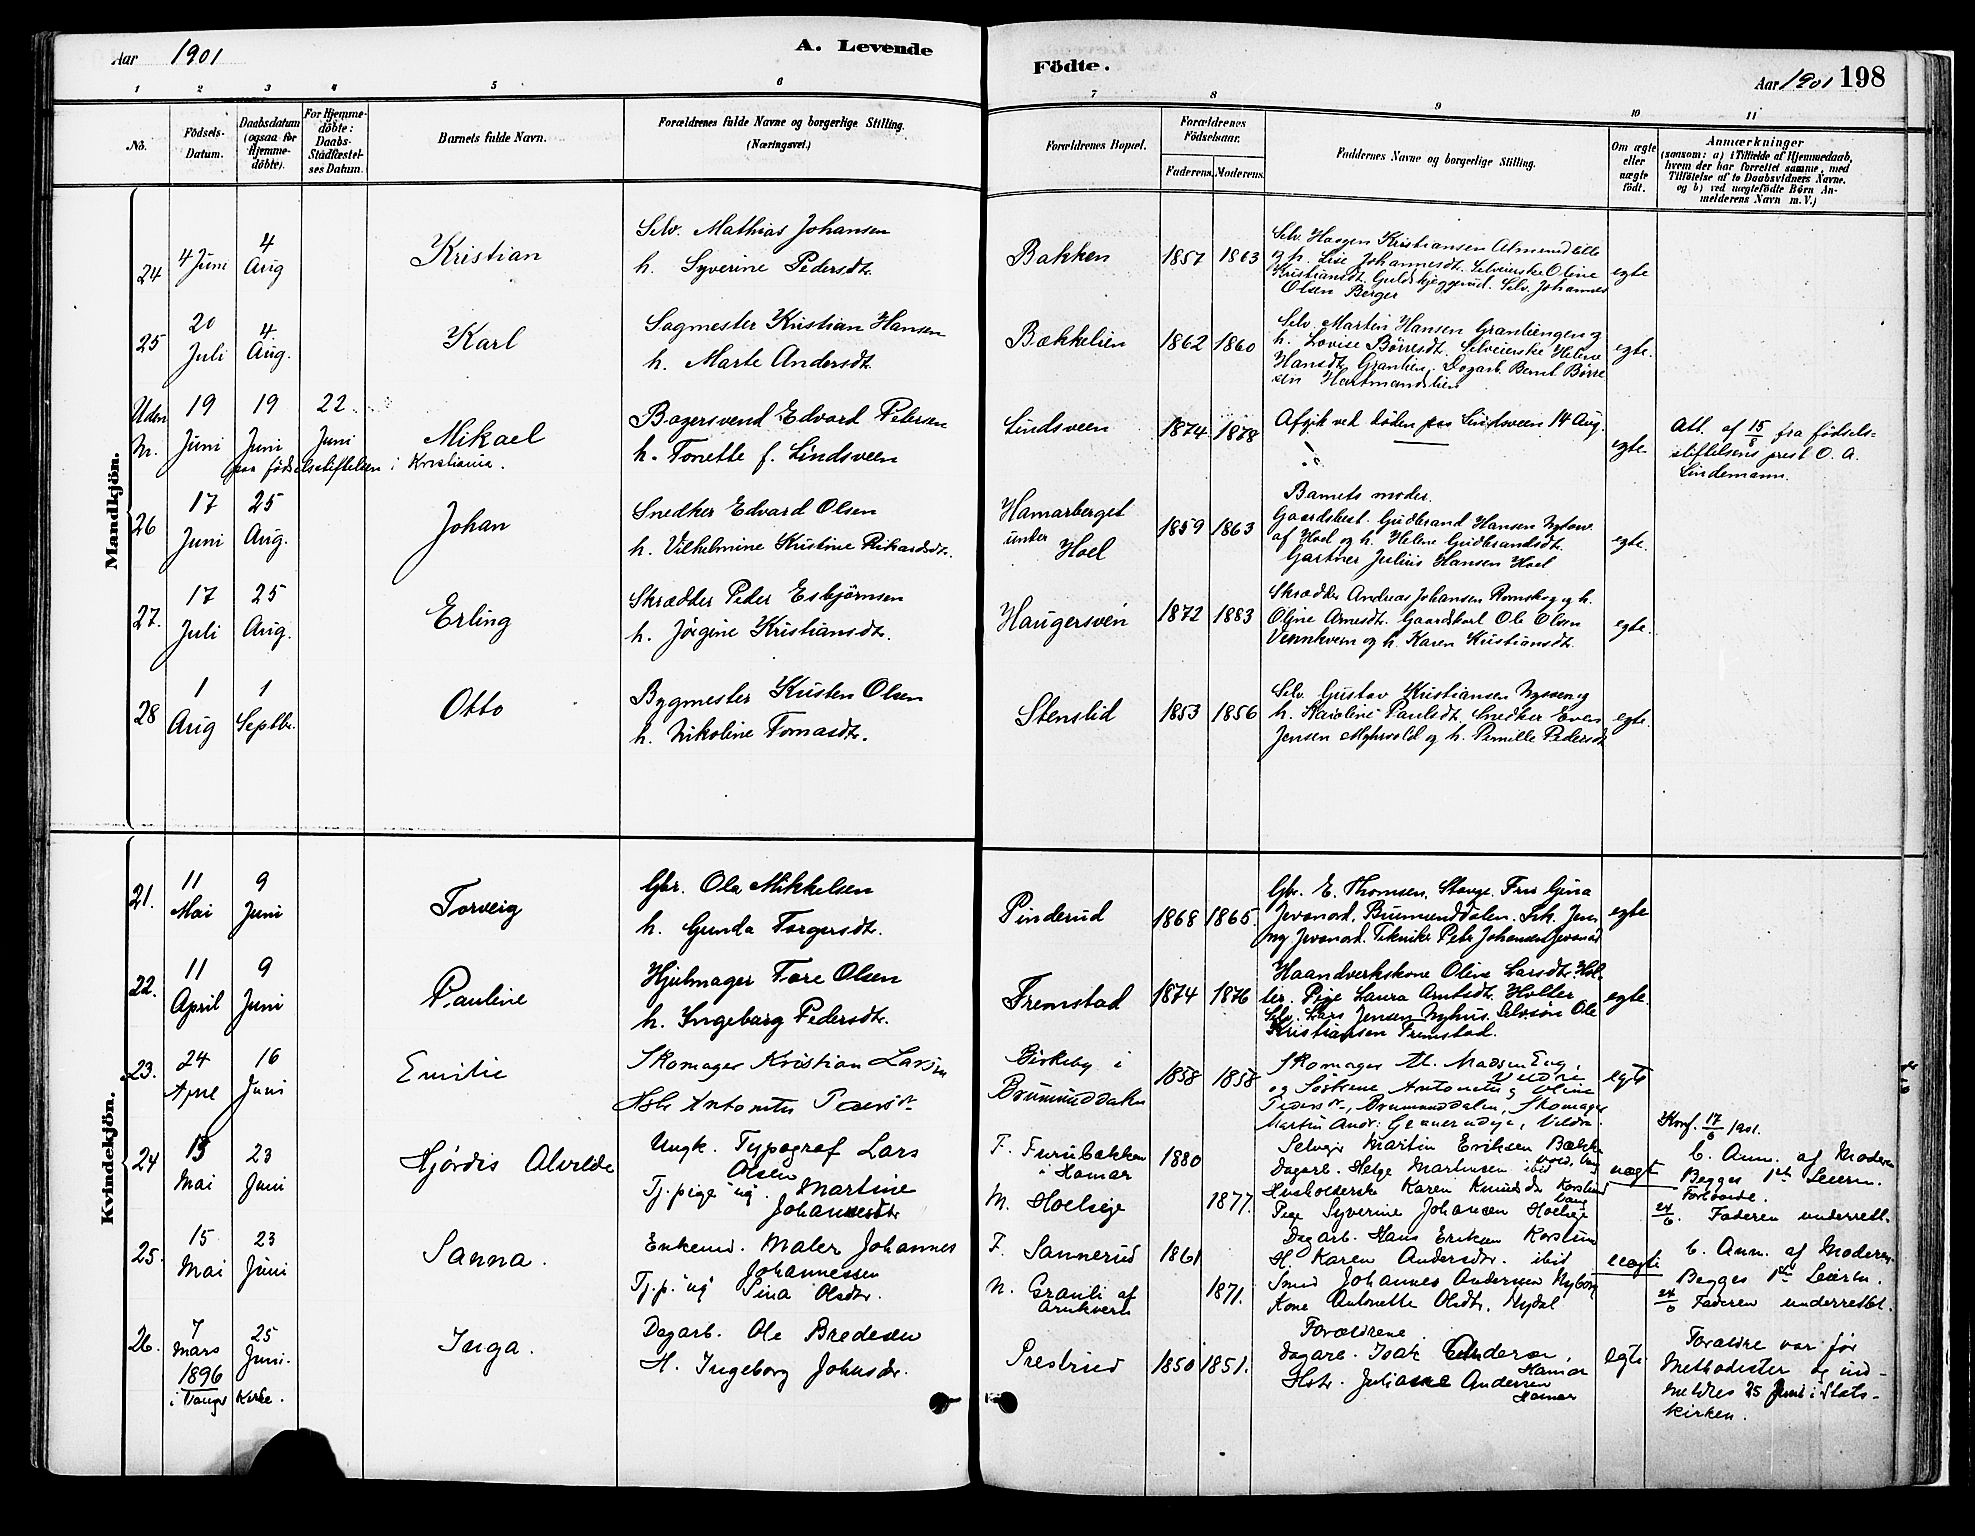 Aar 1901
A. Levende
Födte.
Aar 1901 198
1 2 3 4 5 6 7 8 9 10 11
No.
Födsels-Datum.
Daabsdatum (ogsaa for Hjemme-döbte).
For Hjemme-döbte: Daabs-Stadfæstel-ses Datum.
Barnets fulde Navn.
Forældrenes fulde Navne og borgerlige Stilling. (Næringsvei.)
Forældrenes Bopæl.
Forældrenes Födselsaar.
Faderens. Moderens.
Faddernes Navne og borgerlige Stilling.
Om ægte eller uægte födt.
Anmærkninger
(saasom: a) i Tilfælde af Hjemmedaab, hvem der har forrettet samme, med Tilföielse af to Daabsvidners Navne. og b) ved uægtefödte Börn An-melderens Navn m. V.)
Mandkjön.
24 4 Juni 4 Aug Kristian
Selv. Mathias Johansen
h. Syverine Pedersdt.
Bakken 1857 1863
Selv. Haagen Kristiansen Almundelle
og h. Lise Johannesdt. Selveierske Oline
Kristiansdt. Guldskjeggerud. Selv. Johannes
Olsen Berger
egte
25 20 Juli 4 Aug. Karl
Sagmester Kristian Hansen
h. Marte Andersdt.
Bækkelien 1862 1860
Selv. Martin Hansen Granliengen og
h. Lovise Børresdt. Selveierske Helene
Hansdt. Granlien. Dagarb. Bernt Børre
sen Hartmandslien
egte.
Uden N. 19 Juni 19 Juni 22 Juni
paa fødselsstiftelsen i Kristiania.
Mikael
Bagersvend Edvard Petersen
h. Tonette f. Lindsveen
Lindsveen 1874 1878
Afgik ved døden paa Lindsveen 14 Aug.
egte.
Att. af 15/8 fra fødsels-
stiftelsens prest O. A.
Lindemann.
26 17 Juni 25 Aug. Johan
Snedker Edvard Olsen
h. Vilhelmine Kristine Rikardsdt.
Hamarberget
under
Hoel
1859 1863
Barnets moder.
Gaardsbest. Gudbrand Hansen
af Hoel og h. Helene Gudbrandsdt.
Gartner Julius Hansen Hoel
egte.
27. 17 Juli 25 Aug. Erling
Skrædder Peder Esbjørnsen
h. Jørgine Kristiansdt.
Haugersvén 1872 1883
Skrædder Andreas Johansen Romskog og h.
Oline Arnesdt. Gaardskarl Ole Olsen
Vennkvern og h. Karen Kristiansdt.
egte.
28 1 Aug 1 Septbr. Otto
Bygmester Kristen Olsen
h. Nikoline Tomasdt.
Stenslid 1853 1856
Selv. Gustav Kristiansen Nysven og
h. Karoline Paulsdt. Snedker Even
Jensen Myhrvold og h. Pernille Pedersdt
egte.
Kvindekjön.
21. 11 Mai 9 Juni Torveig
Gbr. Ole Mikkelsen
h. Gunda Torgersdt.
Pinderud 1868 1865.
Gbr. E. Thomsen, Stavge. Fru Gina
Jevanord, Brumunddalen. Frk. Jen
ny Jevanord. Tekniker Peter Johansen Jevanord
egte
22. 11 April 9 Juni Pauline
Hjulmager Tore Olsen
h. Ingeborg Pedersdt.
Fremstad 1874 1876
Haandverkskone Oline Larsdt. Hol-
ter. Pige Laura Arntsdt. Holter
Selv. Lars Jensen Nyhus. Selvsøn Ole
Kristiansen Fremstad.
egte.
23. 24 April 16 Juni Emilie
Skomager Kristian Larsen
Hstr Antonette Pedersdt
Birkeby i
Brumunddalen
1858 1858
Skomager Th. Madsen Eng,
Veldre
og Søskene Antonette og Oline
Pedersdt., Brumunddalen, Skomager
Martin Andr: Gransrudeie, Veldre.
egte
24 13 Mai 23 Juni Hjördis Alvilde
Ungk. Typograf Lars
Olsen
Tj.pige ug. Martine
Johannesdtr
F. Furubakken
i Hamar 1880
M. Hoelseie 1877.
Selveier Martin Eriksen Bække
vold, Vang
Dagarb. Helge Martinsen ibid
Husholderske Karen Knudsdtr Korslund
Vang
Pige Syverine Johansen Hoelseie
uægte
Konf. 17/6 1901.
C. Ann. af Moderen
Begges 1ste Leierm.
Forlovede.
24/6. Faderen underrett.
25. 15 Mai 23 Juni Sanna.
Enkemd. Maler Johannes
Johannessen
Tj.p. "ug" Pina Olsdtr.
F. Sannerud 1861
M. Granli af
Arnkvern 1871.
Dagarb. Hans Eriksen Korslund
H. Karen Andersdtr. ibid
Smed Johannes Andersen Nyborg
Kone Antonette Olsdtr. Nydal
uægte
C. Ann. af Moderen.
Begges 1ste Leierm.
24/6 Faderen underrettet.
26. 7 Mars 1896 25 Juni.
i Vangs Kirke.
Inga.
Dagarb. Ole Bredesen
H. Ingeborg Johnsdr.
Prestrud 1850 1851.
Forældrene.
Dagarb. Isak Andersen,
Hamar
Hstr. Juliane Andersen
Hamar
egte
Forældre var før
Methodister og ind-
meldtes 25 Juni i Stats-
kirken.